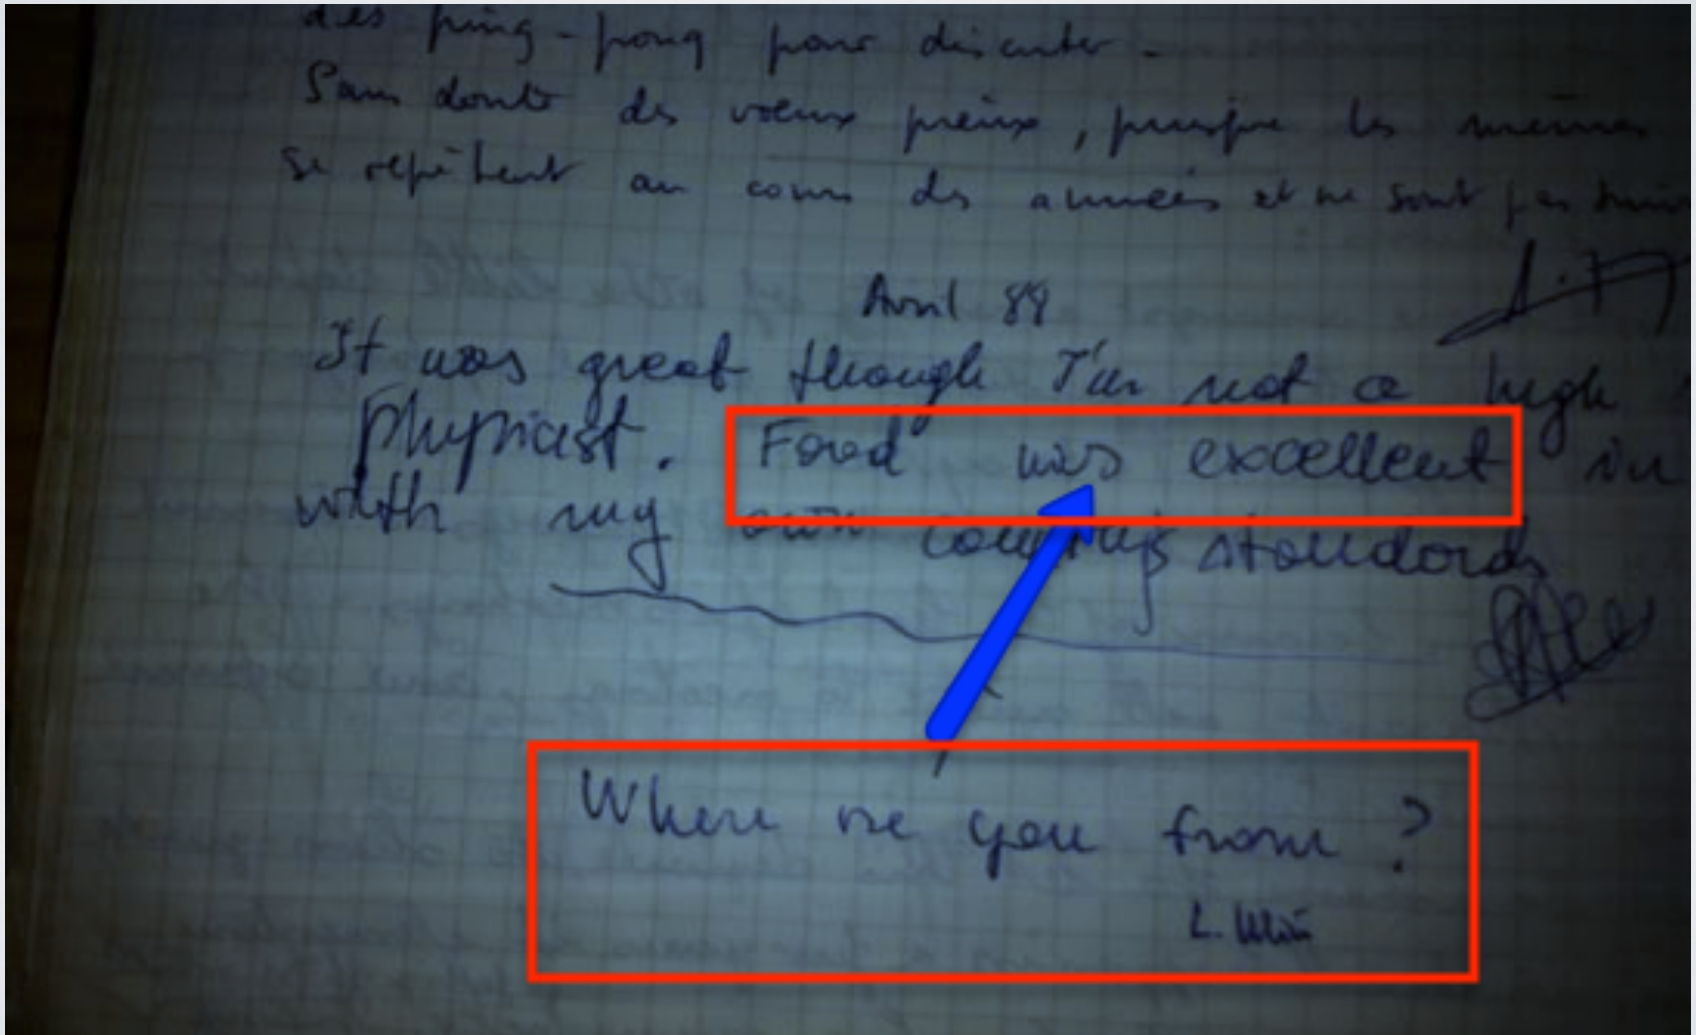 des ping-pong pour discuter.
Sans doute des voeux pieux, puisque les mêmes
se repètent au cours des années et ne sont pas
Avril 88
It was great though I'm not a high
physicist. Food was excellent in
with my own country's standards
Where are you from?
L.